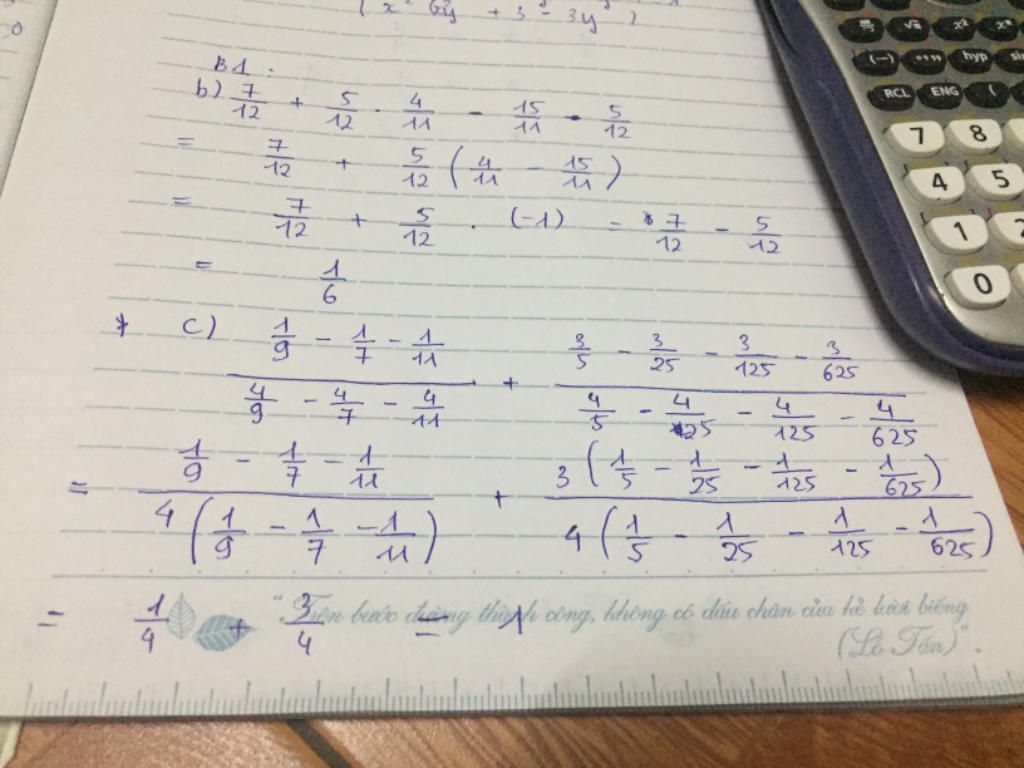 B1:
b) 7/12 + 5/12 . 4/11 - 15/11 . 5/12
= 7/12 + 5/12 ( 4/11 - 15/11 )
= 7/12 + 5/12 . (-1) = 7/12 - 5/12
= 1/6
* c) (1/9 - 1/7 - 1/11)/(4/9 - 4/7 - 4/11) + (3/5 - 3/25 - 3/125 - 3/625)/(4/5 - 4/25 - 4/125 - 4/625)
= (1/9 - 1/7 - 1/11)/(4 (1/9 - 1/7 - 1/11)) + (3 (1/5 - 1/25 - 1/125 - 1/625))/(4 (1/5 - 1/25 - 1/125 - 1/625))
= 1/4 + 3/4 = 1
"Trên bước đường thành công, không có dấu chân của kẻ lười biếng
(Lỗ Tấn)".
RCL ENG (
(-) °,,, hyp sin
√ x²
7 8
4 5
1 2
0